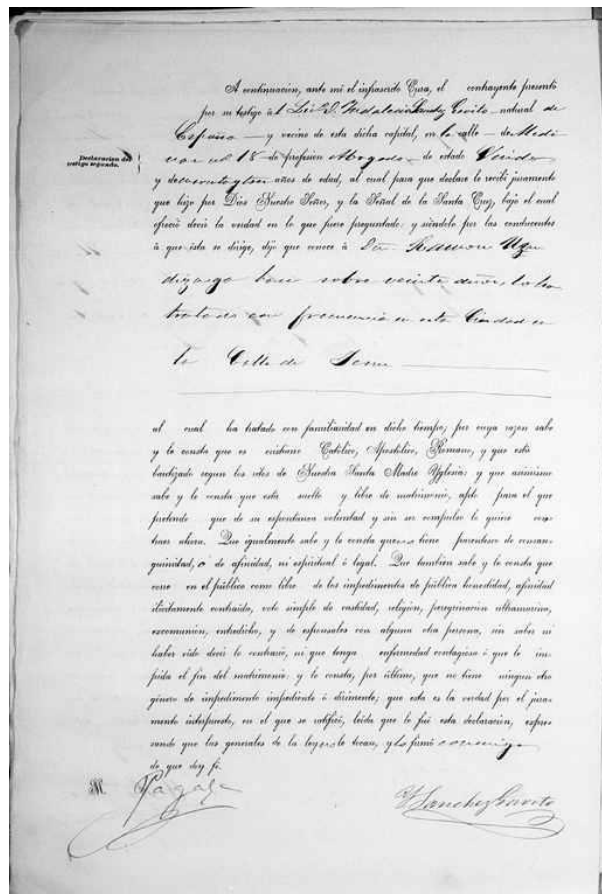 A continuacion, ante mi el infrascrito Cura, el contrayente presentó
por su testigo á l Lic. D. Indalecio Sanchez Gavito natural de
España y vecino de esta dicha capital, en la calle de Medi
nas nº 18 de profesion Abogado de estado Viudo
Declaracion del
testigo segundo.
y de cuarenta y tres años de edad, al cual para que declare le recibí juramento
que hizo por Dios Nuestro Señor, y la Señal de la Santa Cruz, bajo el cual
ofreció decir la verdad en lo que fuere preguntado: y siéndolo por las conducentes
á que ésta se dirige, dijo que conoce á Dn. Ramon
hace sobre veinte años, lo ha
tratado con frecuencia en esta Ciudad en
la Calle de
al cual ha tratado con familiaridad en dicho tiempo; por cuya razon sabe
y le consta que es cristiano Católico, Apostólico, Romano, y que está
bautizado segun los ritos de Nuestra Santa Madre Yglesia: y que asimismo
sabe y le consta que está suelto y libre de matrimonio, apto para el que
pretende que de su espontanea voluntad y sin ser compulso lo quiere con-
traer ahora. Que igualmente sabe y le consta que no tiene parentesco de consan-
guinidad, o de afinidad, ni espiritual ó legal. Que tambien sabe y le consta que
corre en el público como libre de los impedimentos de pública honestidad, afinidad
ilícitamente contraida, voto simple de castidad, religion, peregrinacion ultramarina,
excomunion, entredicho, y de esponsales con alguna otra persona, sin saber ni
haber oido decir lo contrario, ni que tenga enfermedad contagiosa ó que le im-
pida el fin del matrimonio: y le consta, por último, que no tiene ningun otro
género de impedimento impediente ó dirimente; que esta es la verdad por el jura-
mento interpuesto, en el que se ratificó, leida que le fué esta declaración, expre-
sando que las generales de la ley no le tocan, y la firmó conmigo
de que doy fé.
M. Pagaza
Y Sanchez Gavito